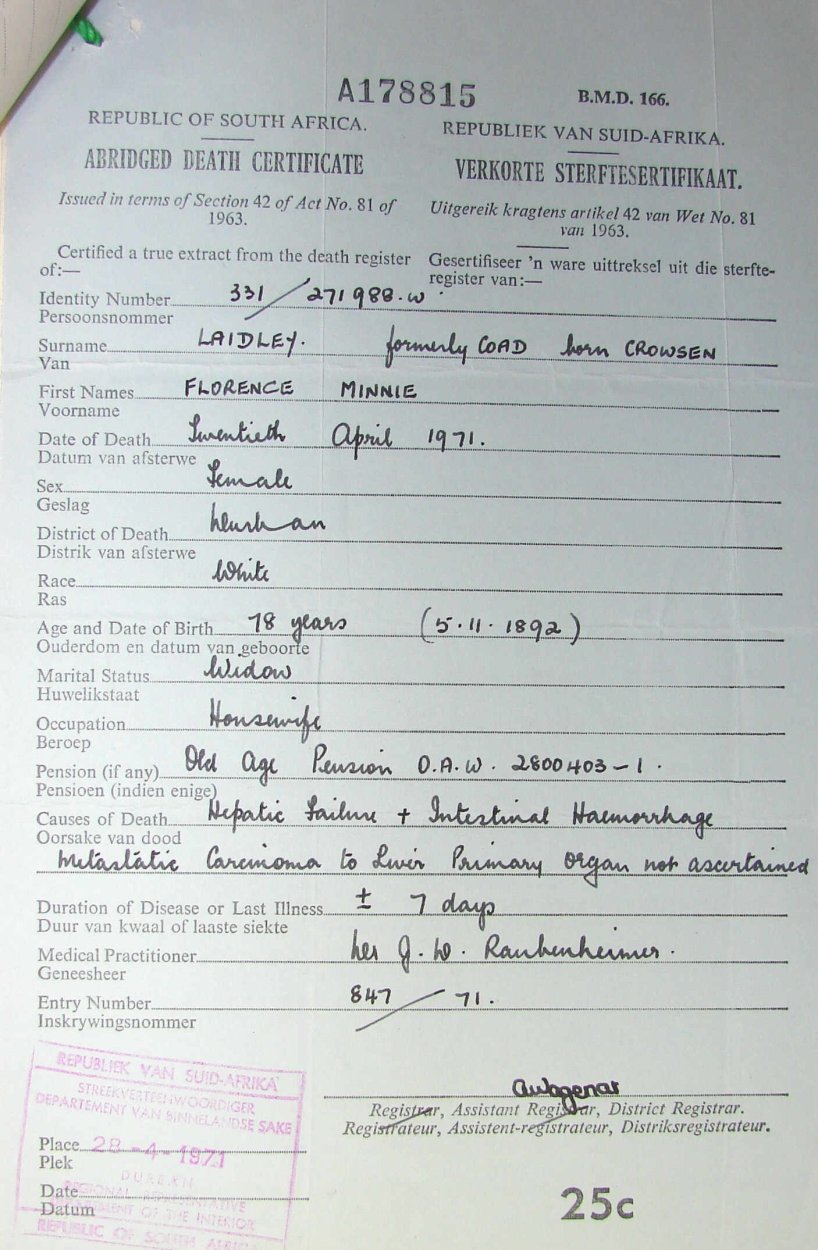 A178815
B.M.D. 166.
REPUBLIC OF SOUTH AFRICA.
REPUBLIEK VAN SUID-AFRIKA.
ABRIDGED DEATH CERTIFICATE
VERKORTE STERFTESERTIFIKAAT.
Issued in terms of Section 42 of Act No. 81 of
1963.
Uitgereik kragtens artikel 42 van Wet No. 81
van 1963.
Certified a true extract from the death register
of:—
Gesertifiseer 'n ware uittreksel uit die sterfte-
register van:—
Identity Number 331/271988.W
Persoonsnommer
Surname LAIDLEY. formerly COAD born CROWSEN
Van
First Names FLORENCE MINNIE
Voorname
Date of Death Twentieth April 1971.
Datum van afsterwe
Sex Female
Geslag
District of Death Durban
Distrik van afsterwe
Race White
Ras
Age and Date of Birth 78 years (5.11.1892)
Ouderdom en datum van geboorte
Marital Status Widow
Huwelikstaat
Occupation Housewife
Beroep
Pension (if any) Old Age Pension O.A.W. 2800403-1.
Pensioen (indien enige)
Causes of Death Hepatic Failure + Intestinal Haemorrhage
Oorsake van dood
Metastatic Carcinoma to Liver Primary organ not ascertained
Duration of Disease or Last Illness ± 7 days
Duur van kwaal of laaste siekte
Medical Practitioner Dr J. W. Raubenheimer.
Geneesheer
Entry Number 847/71.
Inskrywingsnommer
REPUBLIEK VAN SUID-AFRIKA
STREEKVERTEENWOORDIGER
DEPARTEMENT VAN BINNELANDSE SAKE
Registrar, Assistant Registrar, District Registrar.
Registrateur, Assistent-registrateur, Distriksregistrateur.
Place 28-4-1971
Plek
DURBAN
REGIONAL REPRESENTATIVE
Date
DEPARTMENT OF THE INTERIOR
Datum
REPUBLIC OF SOUTH AFRICA
25c